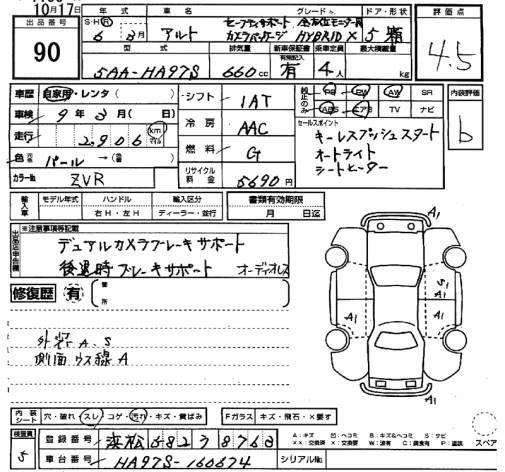 10月17日
出品番号
90
年式 車名 グレード ドア・形状
S・H・R 6年 3月 アルト セーフティサポート 全方位モニター用
カメラパッケージ HYBRID X 5
型式 排気量 新車保証書 乗車定員 最大積載量
有効記入
5AA-HA97S 660cc 有 4人 kg
評価点
4.5
車歴 自家用・レンタ( )
車検 9年3月( 日)
走行 2,906 km マイル
色 パール →( 番)
カラーNo. ZVR
シフト 1AT
冷房 AAC
燃料 G
リサイクル料金 5690円
純正のみ PS PW AW SR
ABS エアB TV ナビ
内装評価
b
セールスポイント
キーレスプッシュスタート
オートライト
シートヒーター
輸入車 モデル年式 ハンドル 輸入区分
右H・左H ディーラー・並行
書類有効期限
月 日迄
※注意事項等記載
出品店申告欄
デュアルカメラブレーキサポート
後退時ブレーキサポート オーディオレス
修復歴 有 箇所
外装 A.S
側面ウス線A
A1
S1
A1
A1
A1
A1
内装シート 穴・破れ・スレ・コゲ・汚れ・キズ・黄ばみ
Fガラス キズ・飛石・×要す
検査員
5
登録番号 浜松
車台番号 HA97S-160674
シリアルNo.
A:キズ U:ヘコミ B:キズ&ヘコミ S:サビ
スペア